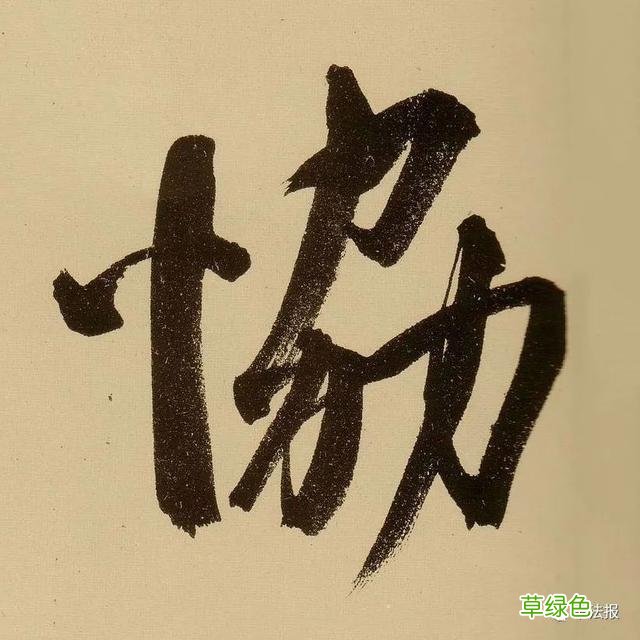 協
草绿色
法报